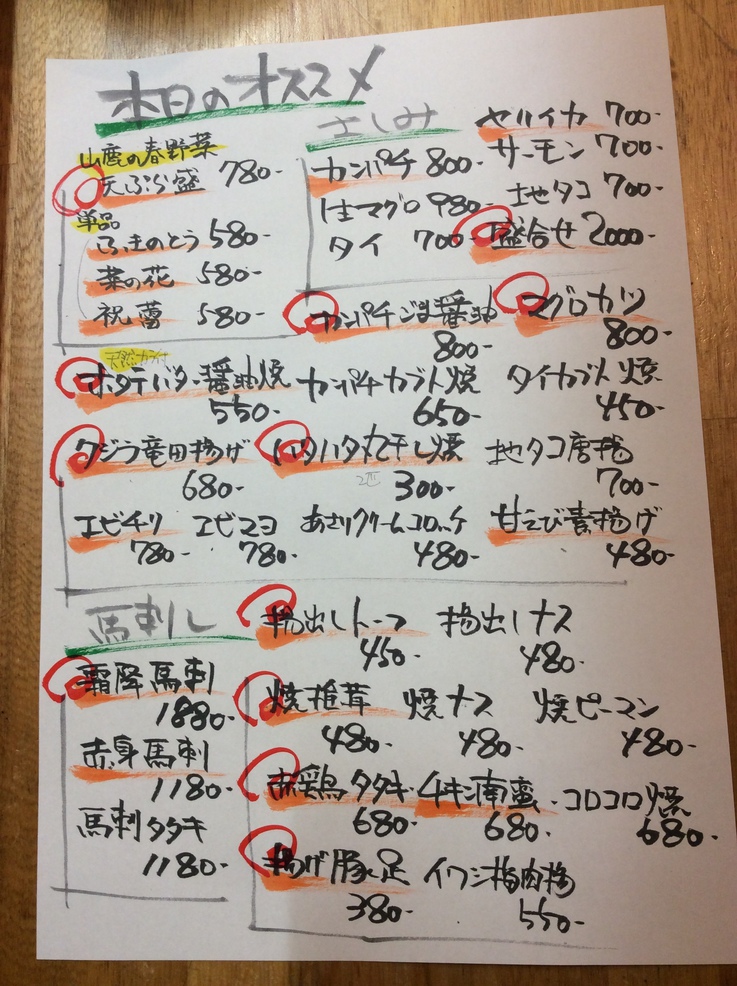 本日のオススメ
山鹿の春野菜
天ぷら盛 780-
単品
ふきのとう 580-
菜の花 580-
祝蕾 580-
さしみ
カンパチ 800-
生マグロ 980-
タイ 700-
ヤリイカ 700-
サーモン 700-
地タコ 700-
盛合せ 2000-
カンパチごま醤油 800-
マグロカツ 800-
ホタテバター醤油焼 550-
カンパチカブト焼 650-
タイカブト焼 450-
クジラ竜田揚げ 680-
ハタハタ丸干し焼
2匹 300-
地タコ唐揚 700-
エビチリ 780-
エビマヨ 780-
あさりクリームコロッケ 480-
甘えび素揚げ 480-
馬刺し
霜降馬刺 1880-
赤身馬刺 1180-
馬刺タタキ 1180-
揚出しトーフ 450-
揚出しナス 480-
焼椎茸 480-
焼ナス 480-
焼ピーマン 480-
赤鶏タタキ 680-
チキン南蛮 680-
コロコロ焼 680-
揚げ豚足 380-
イワシ梅肉揚 550-